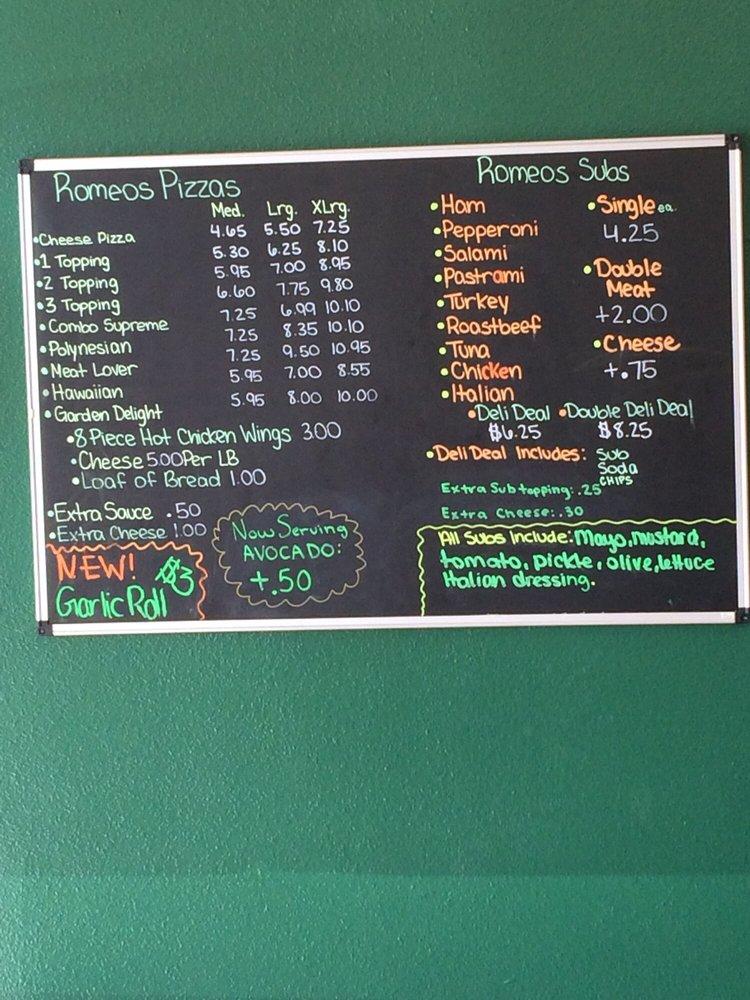 Romeos Pizzas
Med. Lrg. XLrg.
•Cheese Pizza 4.65 5.50 7.25
•1 Topping 5.30 6.25 8.10
•2 Topping 5.95 7.00 8.95
•3 Topping 6.60 7.75 9.80
•Combo Supreme 7.25 6.99 10.10
•Polynesian 7.25 8.35 10.10
•Meat Lover 7.25 9.50 10.95
•Hawaiian 5.95 7.00 8.55
•Garden Delight 5.95 8.00 10.00
•8 Piece Hot Chicken Wings 3.00
•Cheese 5.00 Per LB
•Loaf of Bread 1.00
•Extra Sauce .50
•Extra Cheese 1.00
NEW!
Garlic Roll $3
Now Serving
AVOCADO:
+.50
Romeos Subs
•Ham
•Pepperoni
•Salami
•Pastrami
•Turkey
•Roastbeef
•Tuna
•Chicken
•Italian
•Single ea.
4.25
•Double
Meat
+2.00
•Cheese
+.75
•Deli Deal •Double Deli Deal
$6.25 $8.25
•Deli Deal Includes: Sub
Soda
CHIPS
Extra Sub topping: .25
Extra Cheese: .30
All Subs Include: Mayo, mustard,
tomato, pickle, olive, lettuce
Italian dressing.